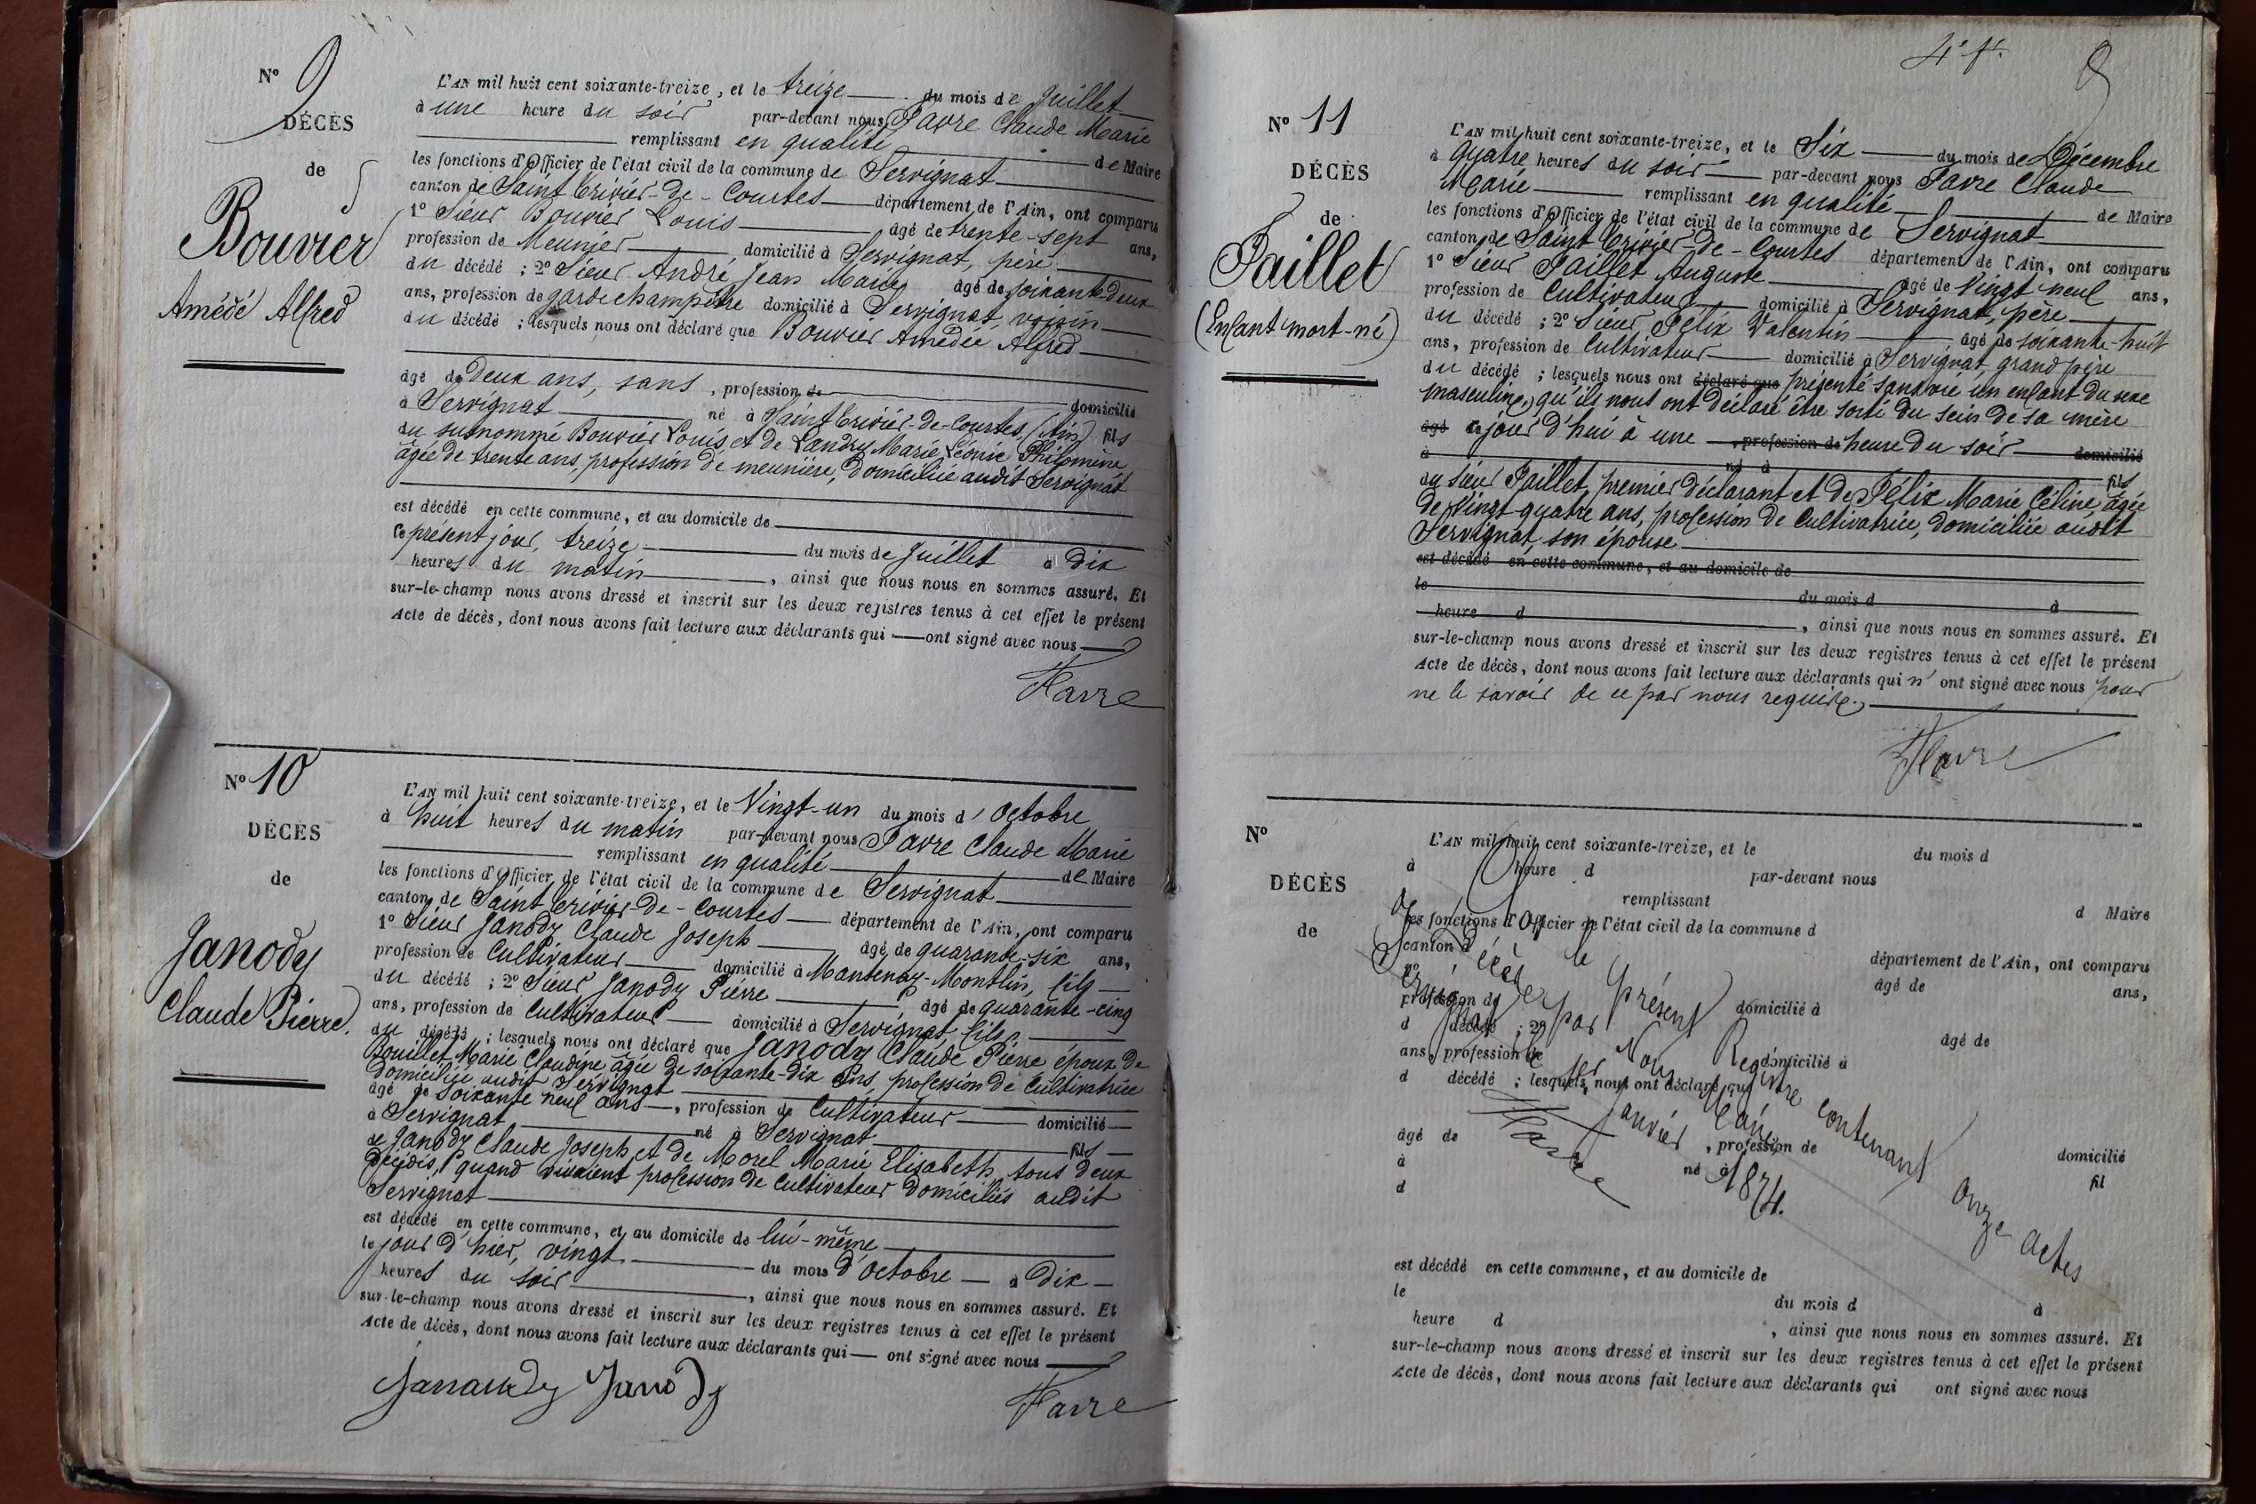 Nº 9
DÉCÈS
de
Bouvier
Amédé Alfred
L'AN mil huit cent soixante-treize, et le treize du mois de Juillet
à une heure du soir par-devant nous Favre Claude Marie
remplissant en qualité de Maire
les fonctions d'Officier de l'état civil de la commune de Servignat
canton de Saint Trivier-de-Courtes département de l'Ain, ont comparu
1º Sieur Bouvier Louis âgé de trente-sept ans,
profession de Meunier domicilié à Servignat, père
du décédé ; 2º Sieur André Jean Marie âgé de soixante-deux
ans, profession de garde champêtre domicilié à Servignat, voisin
du décédé ; lesquels nous ont déclaré que Bouvier Amédée Alfred
âgé de deux ans, sans, profession de domicilié
à Servignat né à Saint Trivier-de-Courtes (Ain) fils
du susnommé Bouvier Louis et de Landry Marie Léonie Philomène
âgée de trente ans, profession de meunière, domiciliée audit Servignat
est décédé en cette commune, et au domicile de
le présent jour, treize du mois de Juillet à dix
heures du matin, ainsi que nous nous en sommes assuré. Et
sur-le-champ nous avons dressé et inscrit sur les deux registres tenus à cet effet le présent
Acte de décès, dont nous avons fait lecture aux déclarants qui ont signé avec nous
Favre
Nº 10
DÉCÈS
de
Janody
Claude Pierre.
L'AN mil huit cent soixante-treize, et le Vingt-un du mois d'Octobre
à huit heures du matin par-devant nous Favre Claude Marie
remplissant en qualité de Maire
les fonctions d'Officier de l'état civil de la commune de Servignat
canton de Saint Trivier-de-Courtes département de l'Ain, ont comparu
1º Sieur Janody Claude Joseph âgé de quarante-six ans,
profession de Cultivateur domicilié à Mantenay-Montlin, fils
du décédé ; 2º Sieur Janody Pierre âgé de quarante-cinq
ans, profession de Cultivateur domicilié à Servignat, fils
du décédé ; lesquels nous ont déclaré que Janody Claude Pierre époux de
Bouillet Marie Claudine âgée de soixante-dix ans, profession de Cultivatrice
domiciliée audit Servignat
âgé de soixante neuf ans, profession de Cultivateur domicilié
à Servignat né à Servignat fils
de Janody Claude Joseph et de Morel Marie Elisabeth, tous deux
décédés, quand vivaient profession de Cultivateur domiciliés audit
Servignat
est décédé en cette commune, et au domicile de lui-même
le jour d'hier, vingt du mois d'Octobre à dix
heures du soir, ainsi que nous nous en sommes assuré. Et
sur-le-champ nous avons dressé et inscrit sur les deux registres tenus à cet effet le présent
Acte de décès, dont nous avons fait lecture aux déclarants qui ont signé avec nous
Janaudy Janody
Favre
Nº 11
DÉCÈS
de
Paillet
(Enfant mort-né)
L'AN mil huit cent soixante-treize, et le Six du mois de Décembre
à quatre heures du soir par-devant nous Favre Claude
Marie remplissant en qualité de Maire
les fonctions d'Officier de l'état civil de la commune de Servignat
canton de Saint Trivier-de-Courtes département de l'Ain, ont comparu
1º Sieur Paillet Auguste âgé de Vingt neuf ans,
profession de Cultivateur domicilié à Servignat, père
du décédé ; 2º Sieur Félix Valentin âgé de soixante-huit
ans, profession de Cultivateur domicilié à Servignat, grand père
du décédé ; lesquels nous ont déclaré que présenté sans vie un enfant du sexe
masculin, qu'ils nous ont déclaré être sorti du sein de sa mère
âgé ce jour d'hui à une, profession de heure du soir domicilié
à né à fils
du sieur Paillet, premier déclarant et de Félix Marie Céline, âgée
de Vingt-quatre ans, profession de Cultivatrice, domiciliée audit
Servignat, son épouse
est décédé en cette commune, et au domicile de
le du mois d à
heure d, ainsi que nous nous en sommes assuré. Et
sur-le-champ nous avons dressé et inscrit sur les deux registres tenus à cet effet le présent
Acte de décès, dont nous avons fait lecture aux déclarants qui n'ont signé avec nous pour
ne le savoir de ce par nous requis.
Favre
Nº
DÉCÈS
de
L'AN mil huit cent soixante-treize, et le du mois d
à heure d par-devant nous
remplissant d Maire
les fonctions d'Officier de l'état civil de la commune d
canton d département de l'Ain, ont comparu
1º âgé de ans,
profession de domicilié à
d décédé ; 2º âgé de
ans, profession de domicilié à
d décédé ; lesquels nous ont déclaré que
âgé de, profession de domicilié
à né à fil
d
le Présent Registre contenant onze actes
de décès par Nous Maire
Servignat le 1er Janvier 1874.
Favre
est décédé en cette commune, et au domicile de
le du mois d à
heure d, ainsi que nous nous en sommes assuré. Et
sur-le-champ nous avons dressé et inscrit sur les deux registres tenus à cet effet le présent
Acte de décès, dont nous avons fait lecture aux déclarants qui ont signé avec nous